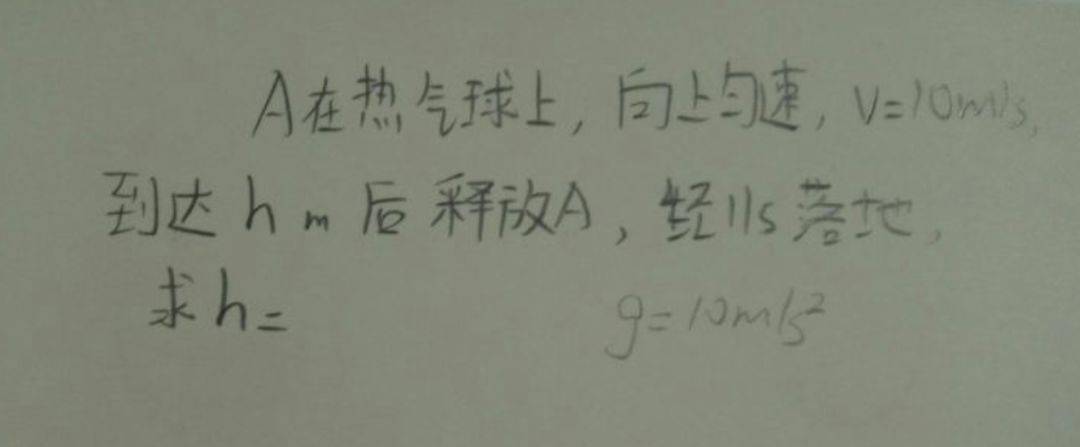 A在热气球上，向上匀速，V=10m/s，
到达hm后释放A，经11s落地，
求h=
g=10m/s²